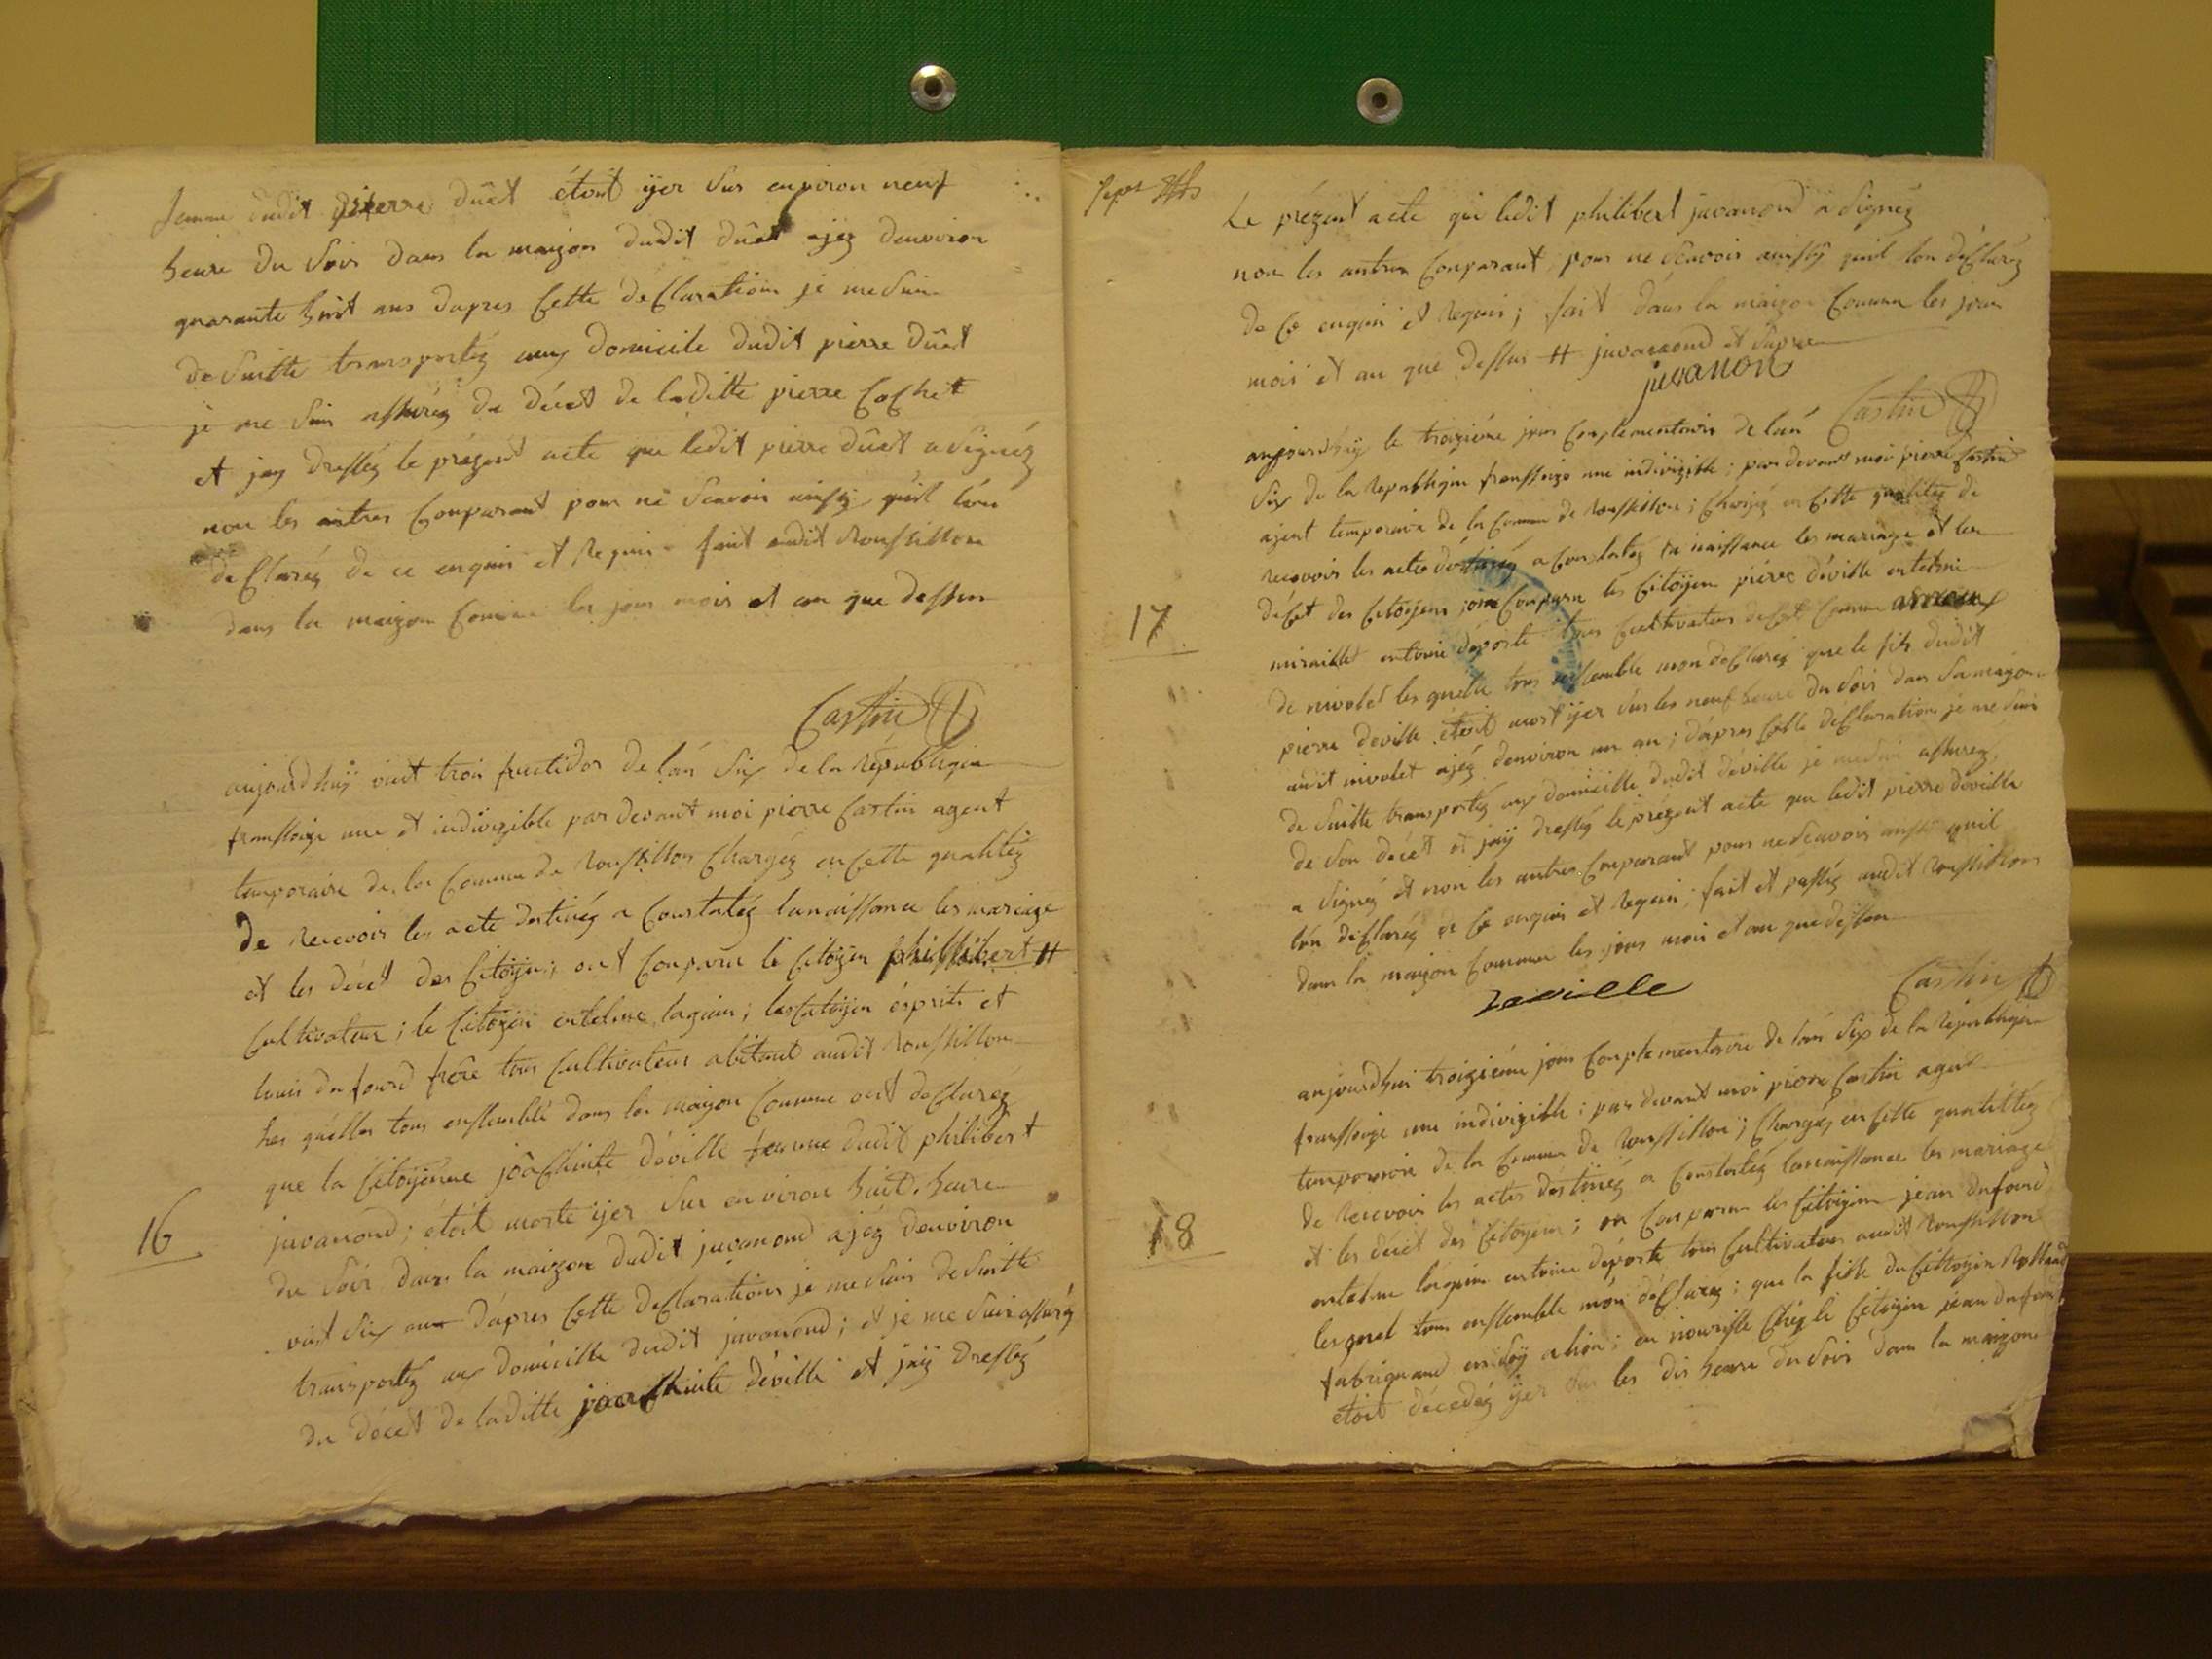 femme dudit pierre duêt étoit ÿer sur environ neuf
heure du soir dans la maizon dudit duêt ajéz denviron
quarante huit ans dapres cette declaration je me suis
de suitte transportéz aux domicile dudit pierre duêt
je me suis assuréz du décet de laditte pierre Cochet
et jay dresséz le prézent acte que ledit pierre duêt a signéz
non les autres Comparant pour ne scavoir ainsÿ quil lon
de Claréz de ce enquis et requis fait audit Roussillon
dans la maizon Comune les jour mois et an que dessus
Castin
aujourdhuÿ vint trois fructidor de lán six de la républiqúe
franssoize une et indivizible par devant moi pierre Castin agent
temporaire de la Comune de Roussillon Chargéz en cette qualitéz
de recevoir les acte destinéz a Constatéz la naissance les mariage
et les décet des Citoÿen; ont Comparu le Citoÿen phillibert #
Cultivateur; le Citoÿen entelme lagoin; les Citoÿen ésprit et
louis dufourd frère tous Cultivateur abitant audit Roussillon
les quélles tous enssemble dans la maizon Comune ont déClaréz
que la Citoÿenne jôaChinte déville femme dudit philibert
juvanond; étoit morte ÿer sur environ huit heure
16
du soir dans la maizon dudit juvanond ajéz denviron
vint six ans dápres Cette déClaration je me suis de suitte
transportéz aux domicille dudit juvanond; et je me suis assuréz
du décet de laditte joaChinte déville et jaÿ dresséz
Le prézent acte que ledit philibert juvanond a signéz
non les autres Comparant pour ne scavoir ainssÿ quil lon déClaréz
de Ce enquis et requis; fait dans la maizon Comune les jour
mois et an que dessus # juvanond et supra
juvanon
Castin
aujourdhuÿ le troiziéme jour Complementaire de lán
six de la république franssoize une indivizible; par devant moi pierre Castin
ajent temporaire de la Comune de Roussillon; Chargéz en Cette qualitéz de
recevoir les actes destinéz a Constatéz la naissance les mariage et les
17
décet des Citoÿens Comparu les Citoÿen piérre déville entelme
miraillet entoine déporte tous Cultivateur de Cet Comune
de nivolet les quelle tous enssemble mon déClaréz que le fils dudit
pierre déville étoit mort ÿer sur les neuf heure du soir dans sa maizon
audit nivolet ajéz denviron un an; dápres Cette déClaration je me suis
de suitte transportéz aux domicille dudit déville je me suis assuréz
de son décet et jaÿ dresséz le prézent acte que ledit pierre déville
a signéz et non les autres Comparant pour ne scavoir ainsi quil
lón déClaréz de Ce enquis et requis; fait et passéz audit Roussillon
dans la maizon Comune les jour mois et an que dessus
Deville
Castin
aujourdhui troiziéme jour Complementaire de lán six de la république
franssoize une indivizible; par devant moi pierre Castin agent
temporaire de la Comune de Roussillon; Chargéz en Cette qualittéz
de recevoir les actes destinéz a Constatéz la naissance les mariage
18
et les décet des Citoÿens; on Comparu les Citoÿen jean dufourd
entelme lagoin entoine déporte tous Cultivateur audit Roussillon
lesquel tous enssemble món déClaréz; que la fille du Cittoÿen Rolland
fabriquand a lion; en nourisse Chéz le Citoÿen jean dufourd
étoit décedéz ÿer sur les dix heure du soir dans la maizon